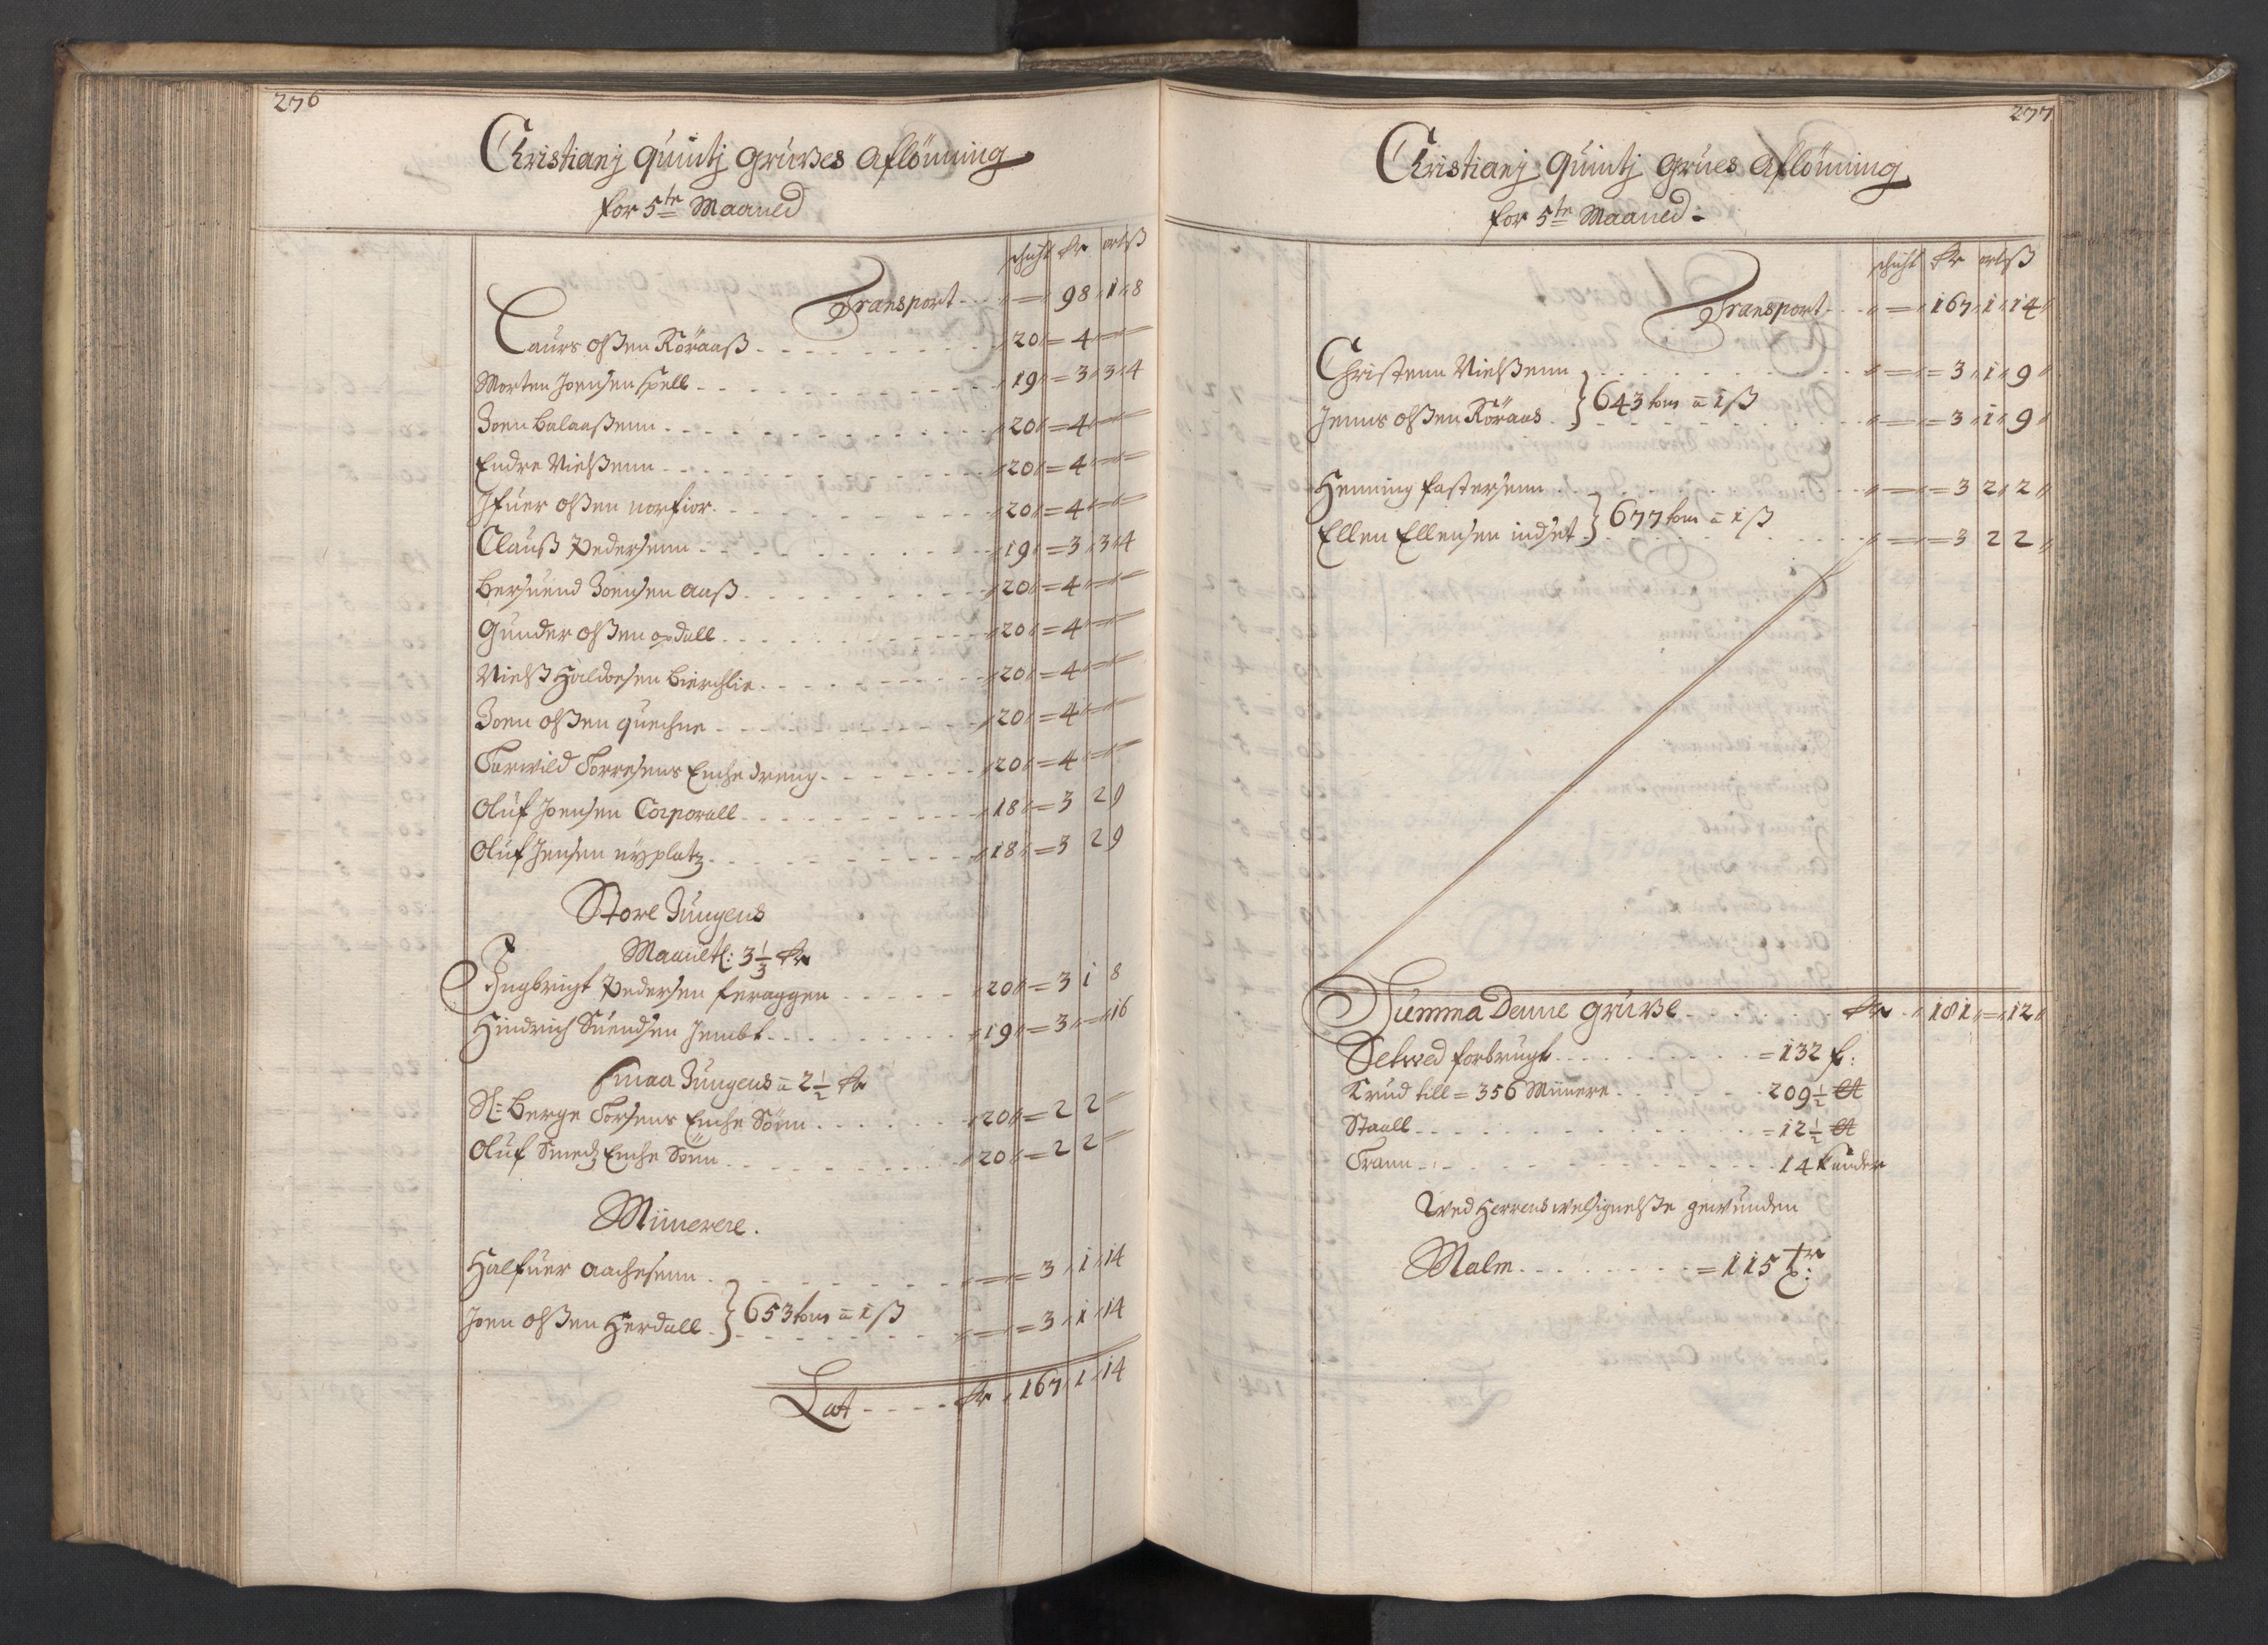 276
Christianj Quintj Gruβes Aflönning
for 5te Maaned
schicht Rr ort ß
Transport - - - " = " 98 " 1 " 8
Laurs Olßen Röraaß - - - " 20 " = 4 " = " =
Morten Joensen spell - - - " 19 " = 3 " 3 " 4
Joen Balaaßenn - - - " 20 " = 4 " = " =
Endre Nielßenn - - - " 20 " = 4 " = " =
Ifuer Olßen norfior - - - " 20 " = 4 " = " =
Clauß Pedersenn - - - " 19 " = 3 " 3 " 4
Bersuend Joensen Aaß - - - " 20 " = 4 " = " =
Gunder Olßen opdall - - - " 20 " = 4 " = " =
Nielß Haldoesen Bierchlie - - - " 20 " = 4 " = " =
Joen Olßen quechne - - - " 20 " = 4 " = " =
Torwild Torresens Enche dreng - - - " 20 " = 4 " = " =
Oluf Joensen Corporall - - - " 18 " = 3 2 9
Oluf Jensen nÿplatz - - - " 18 " = 3 2 9
Store Jungens
Maanetl: 3 1/3 Rr
Ingbrigt Pedersen feraggen - - - " 20 " = 3 1 8
Hindrich Suendsen Jembt - - - " 19 " = 3 " = " 16
smaa Jungens a 2 1/2 Rr
Sl: Berge Torsens Enche Sönn - - - " 20 " = 2 2 =
Oluf Smedz Enche Sönn - - - " 20 " = 2 2 =
Minerere.
Halfuer Aachesenn - - - " = " = 3 " 1 " 14
Joen Olßen Herdall } 653 tom a 1 ß - - - " = " = 3 " 1 " 14
Lat - - - - Rr " 167 " 1 " 14
277
Christianj Quintj Grues Aflönning
for 5te Maaned
schicht Rr ort ß
Transport - - - " = " 167 " 1 " 14 "
Christenn Nielßenn - - - " = " = 3 " 1 " 9 "
Jenns Olßen Röraas } 643 tom a 1 ß - - - " = " = 3 " 1 " 9 "
Henning fastersenn - - - " = " = 3 2 " 2 "
Ellen Ellensen indset } 677 tom a 1 ß - - - " = " = 3 2 2 "
Summa Denne Gruβe - - - Rr " 181 " = " 12 "
Setwed forbrugt - - - = 132 f:
Krud till = 356 Minere - - - 209 1/2 lt
Staall - - - = 12 1/2 lt
Trann - - - 14 Kander
Wed Herrens welsignelße gewunden
Malm - - - = 115 tr: